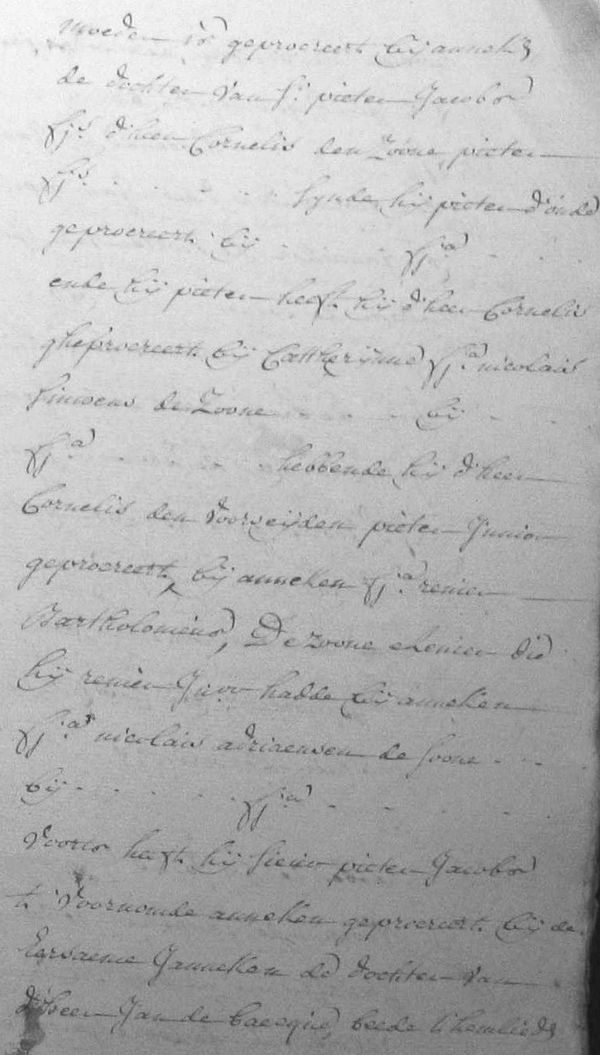 moeder is geprocreert bij anneken
de dochter van Sr. pieter Jacobs
fs. d'heer Cornelis den zoone pieter
fs. . . . . . . . synde hij pieter d'oude
geprocreert bij . . . fa. . . .
ende hij pieter heeft hij d'heer Cornelis
gheprocreert bij Catherijne fa. nicolais
simoens de zoone . . . . bij . . .
fa. . . . . . . hebbende hij d'heer
Cornelis den voorseijden pieter Junior
geprocreert bij anneken fa. renier
Bartholomeus, de zoone renier die
hij renier Junior hadde bij anneken
fa. nicolais adriaensen de soone . . . .
bij . . . . . . . fa. . . . . .
Voorts heeft hij pieter Jacobs
t' voornomde anneken geprocreert bij de
Eersaeme Janneken de dochter van
d'heer Jan de beede